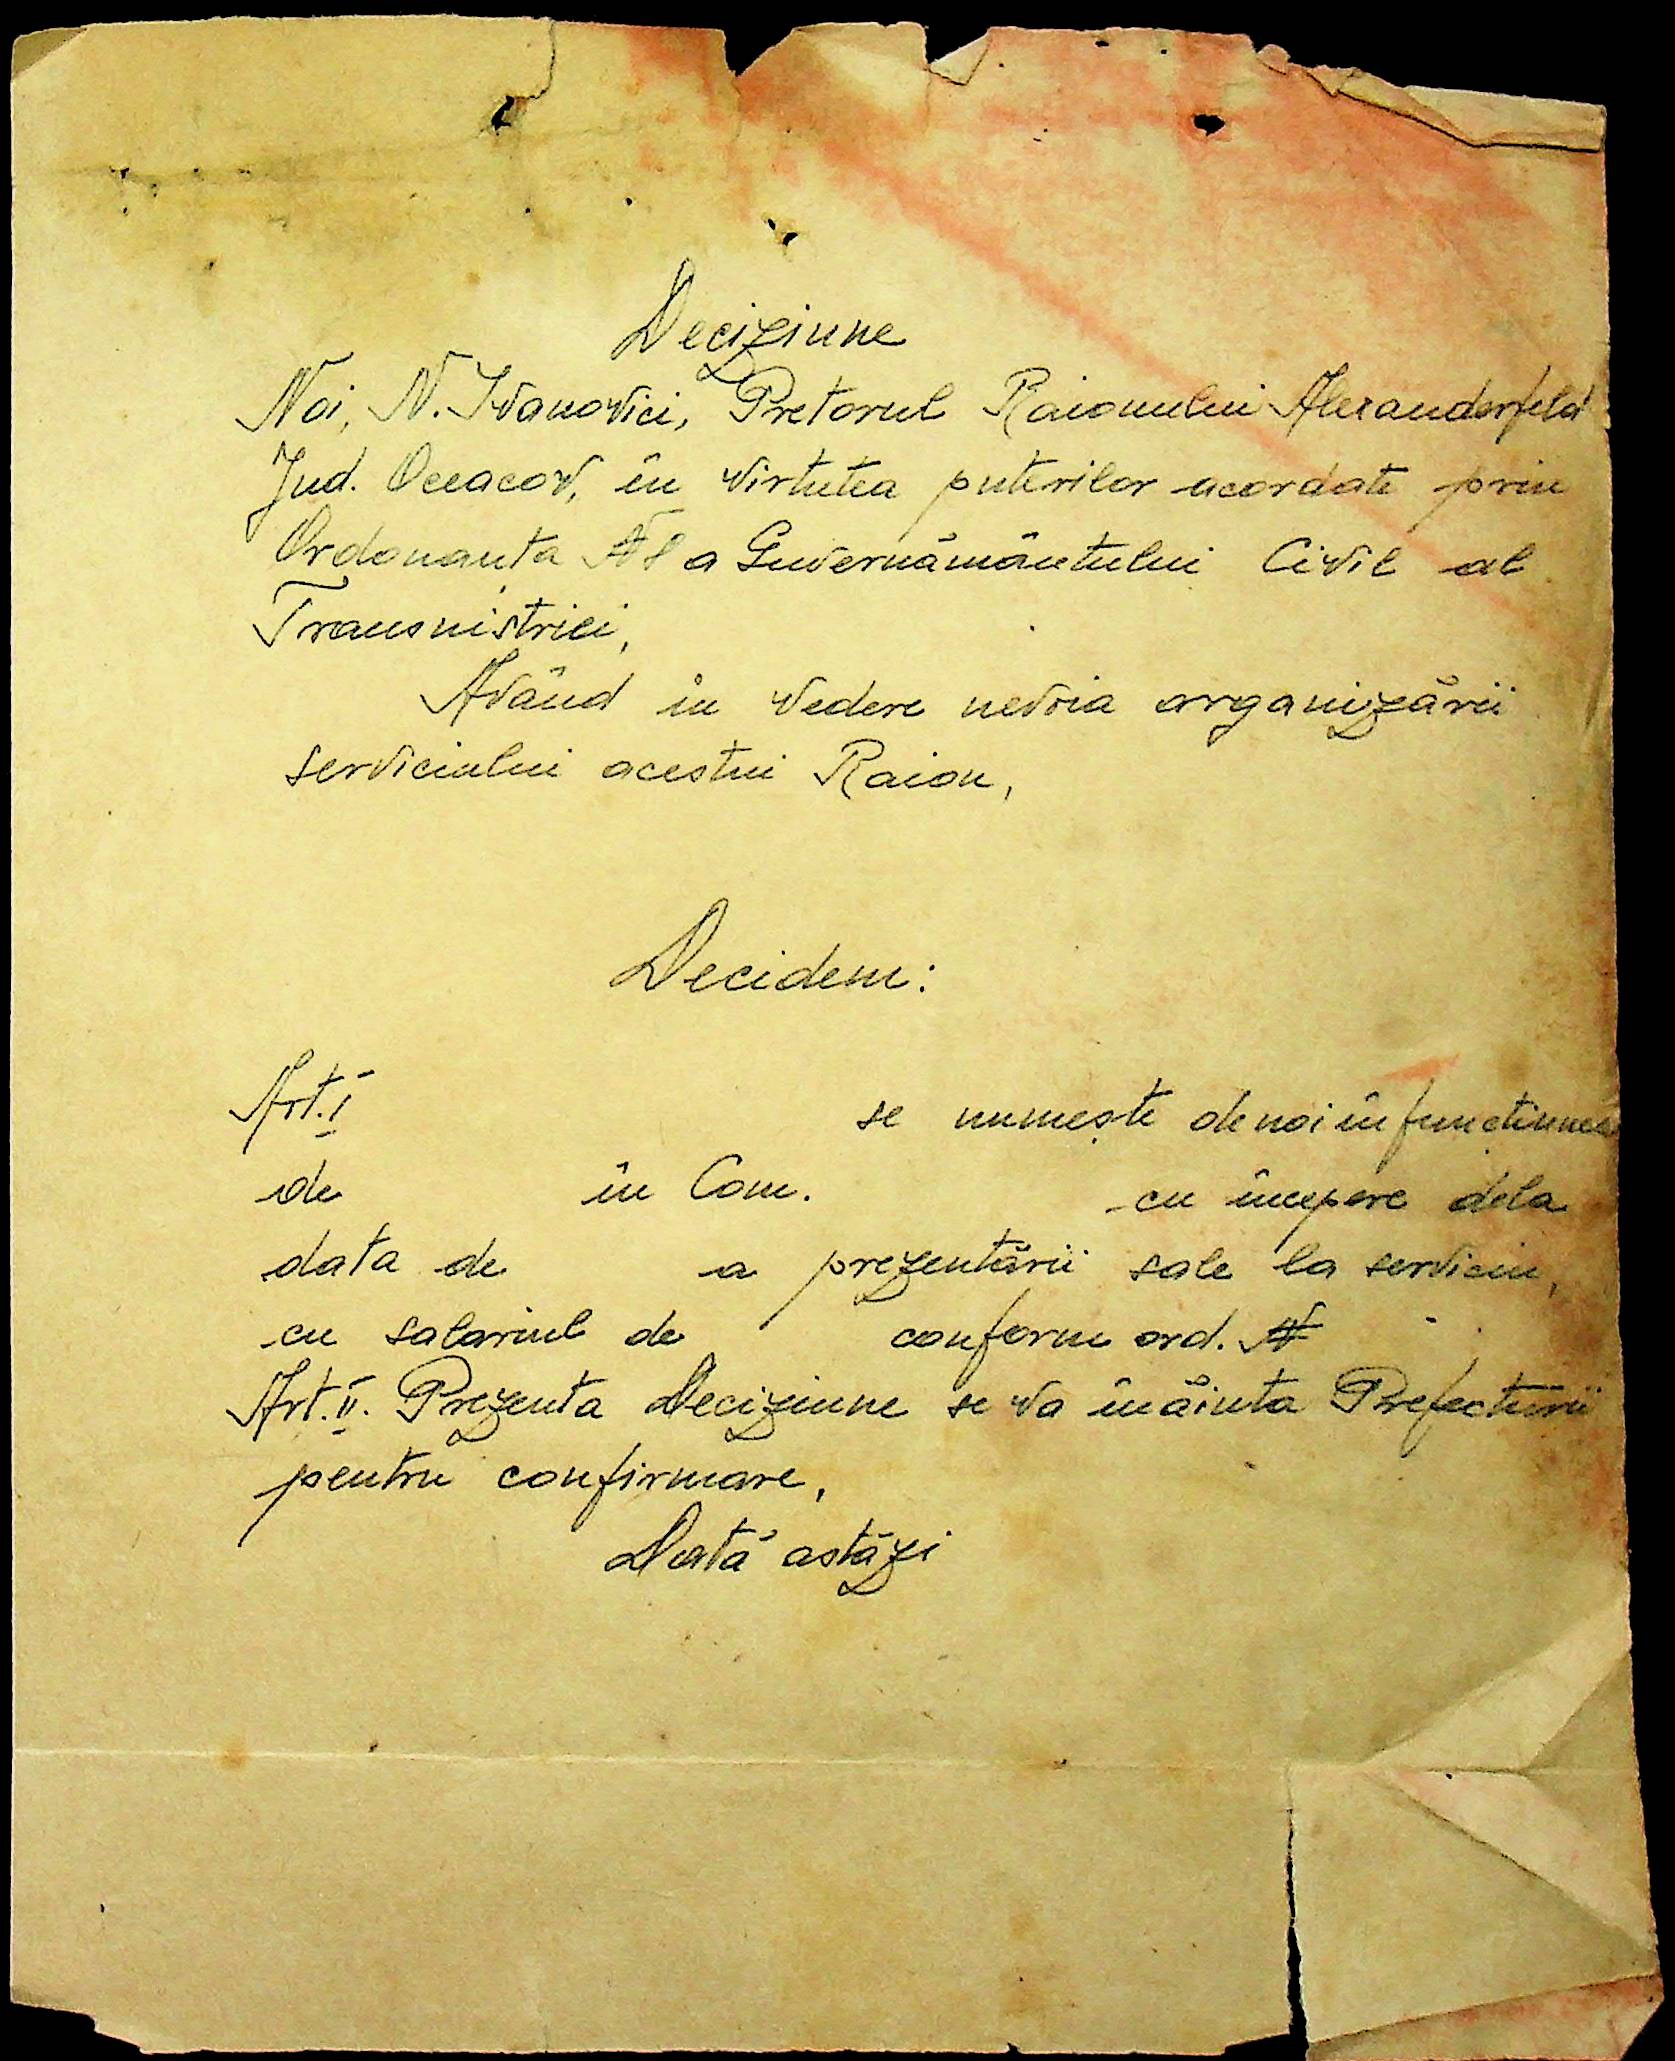 Deciziune
Noi, N. Ivanovici, Pretorul Raionului Alexanderfeld
Jud. Oceacov, în virtutea puterilor acordate prin
Ordonanța N 8 a Guvernământului Civil al
Transnistriei,
Având în vedere nevoia organizării
serviciului acestui Raion,
Decidem:
Art. I se numește de noi în funcțiunea
de în Com. cu începere dela
data de a prezentării sale la serviciu,
cu salariul de conform ord. N
Art. II. Prezenta Deciziune se va înăinta Prefecturii
pentru confirmare,
Dată astăzi